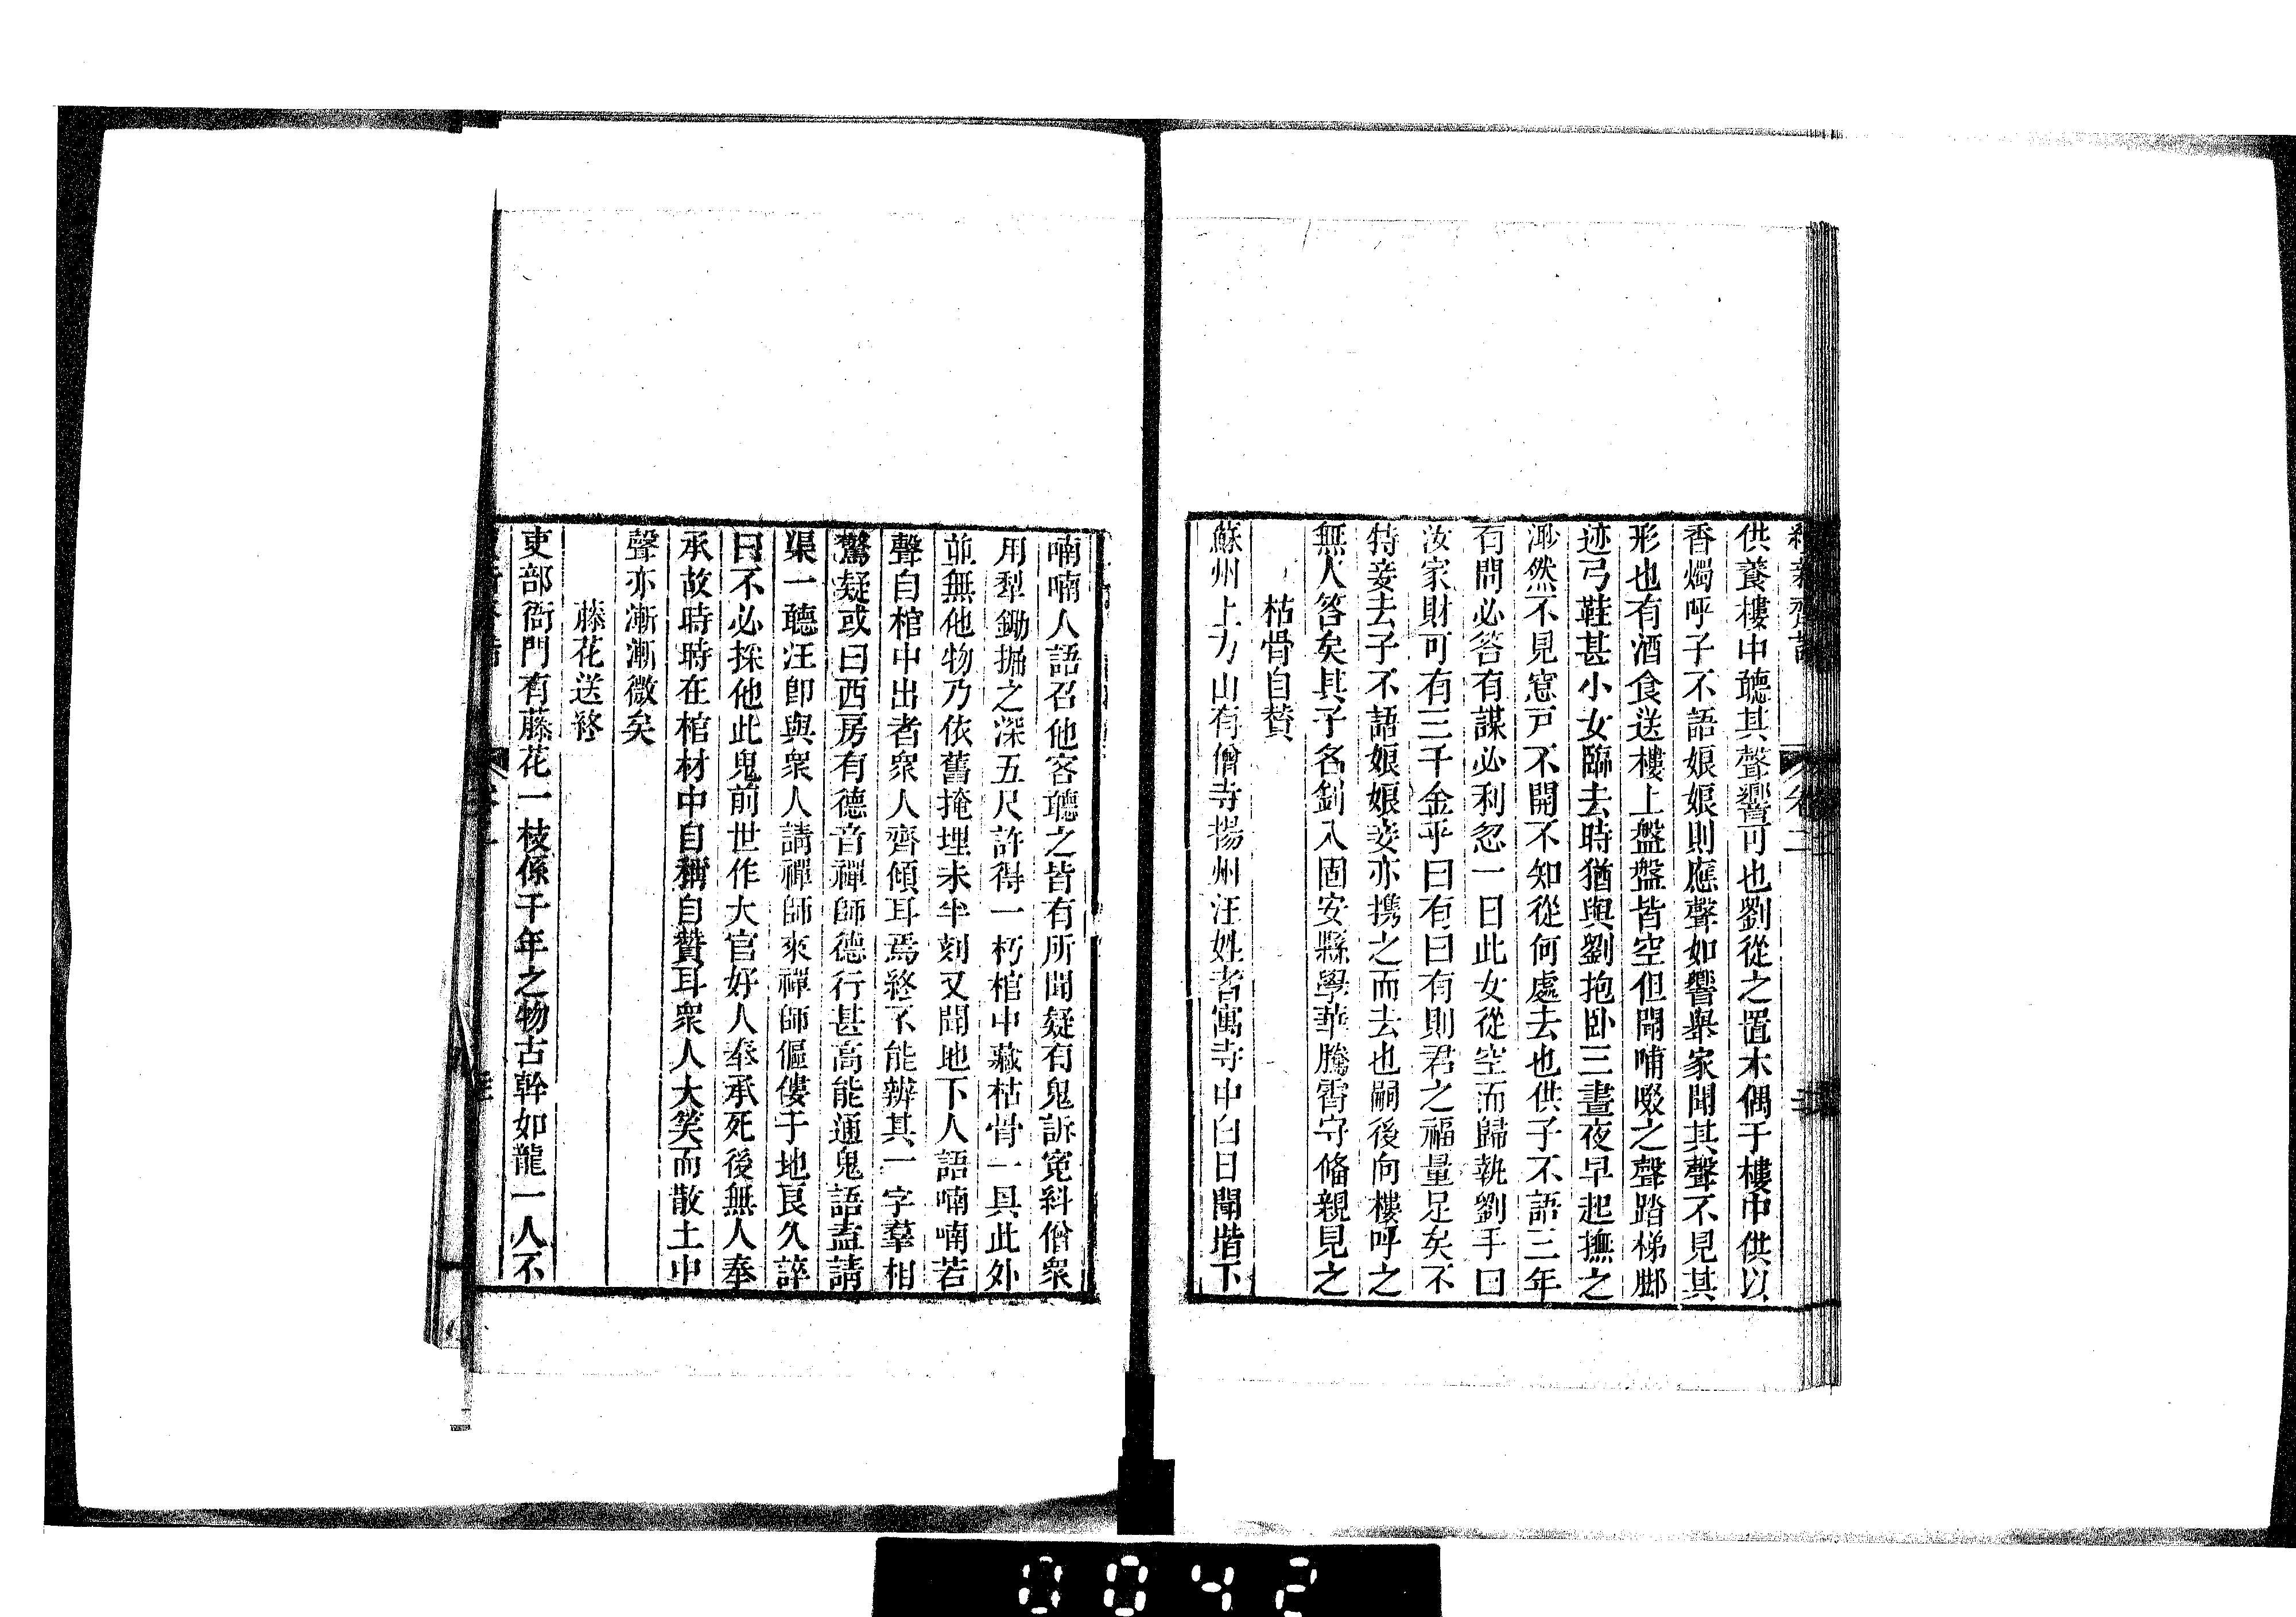 供養樓中聽其聲響可也劉從之置木偶于樓中供以
香燭呼子不語娘娘則應聲如響舉家聞其聲不見其
形也有酒食送樓上盤盤皆空但聞哺啜之聲踏梯脚
迹弓鞋甚小女臨去時猶與劉抱卧三晝夜早起撫之
渺然不見窓戸不開不知從何處去也供子不語三年
有問必答有謀必利忽一日此女從空而歸執劉手曰
汝家財可有三千金乎曰有曰有則君之福量足矣不
特妾去子不語娘娘妾亦携之而去也嗣後向樓呼之
無人答矣其子名釗入固安縣學華騰霄守備親見之
枯骨自贊
蘇州上方山有僧寺揚州汪姓者寓寺中白日聞堦下
喃喃人語召他客聽之皆有所聞疑有鬼訴寃糾僧衆
用犁鋤掘之深五尺許得一朽棺中藏枯骨一具此外
並無他物乃依舊掩埋未半刻又聞地下人語喃喃若
聲自棺中出者衆人齊傾耳焉終不能辨其一字羣相
驚疑或曰西房有德音禪師德行甚高能通鬼語盍請
渠一聽汪卽與衆人請禪師來禪師傴僂于地良久誶
曰不必採他此鬼前世作大官好人奉承死後無人奉
承故時時在棺材中自稱自贊耳衆人大笑而散土中
聲亦漸漸微矣
藤花送終
吏部衙門有藤花一枝係千年之物古幹如龍一人不
卷二